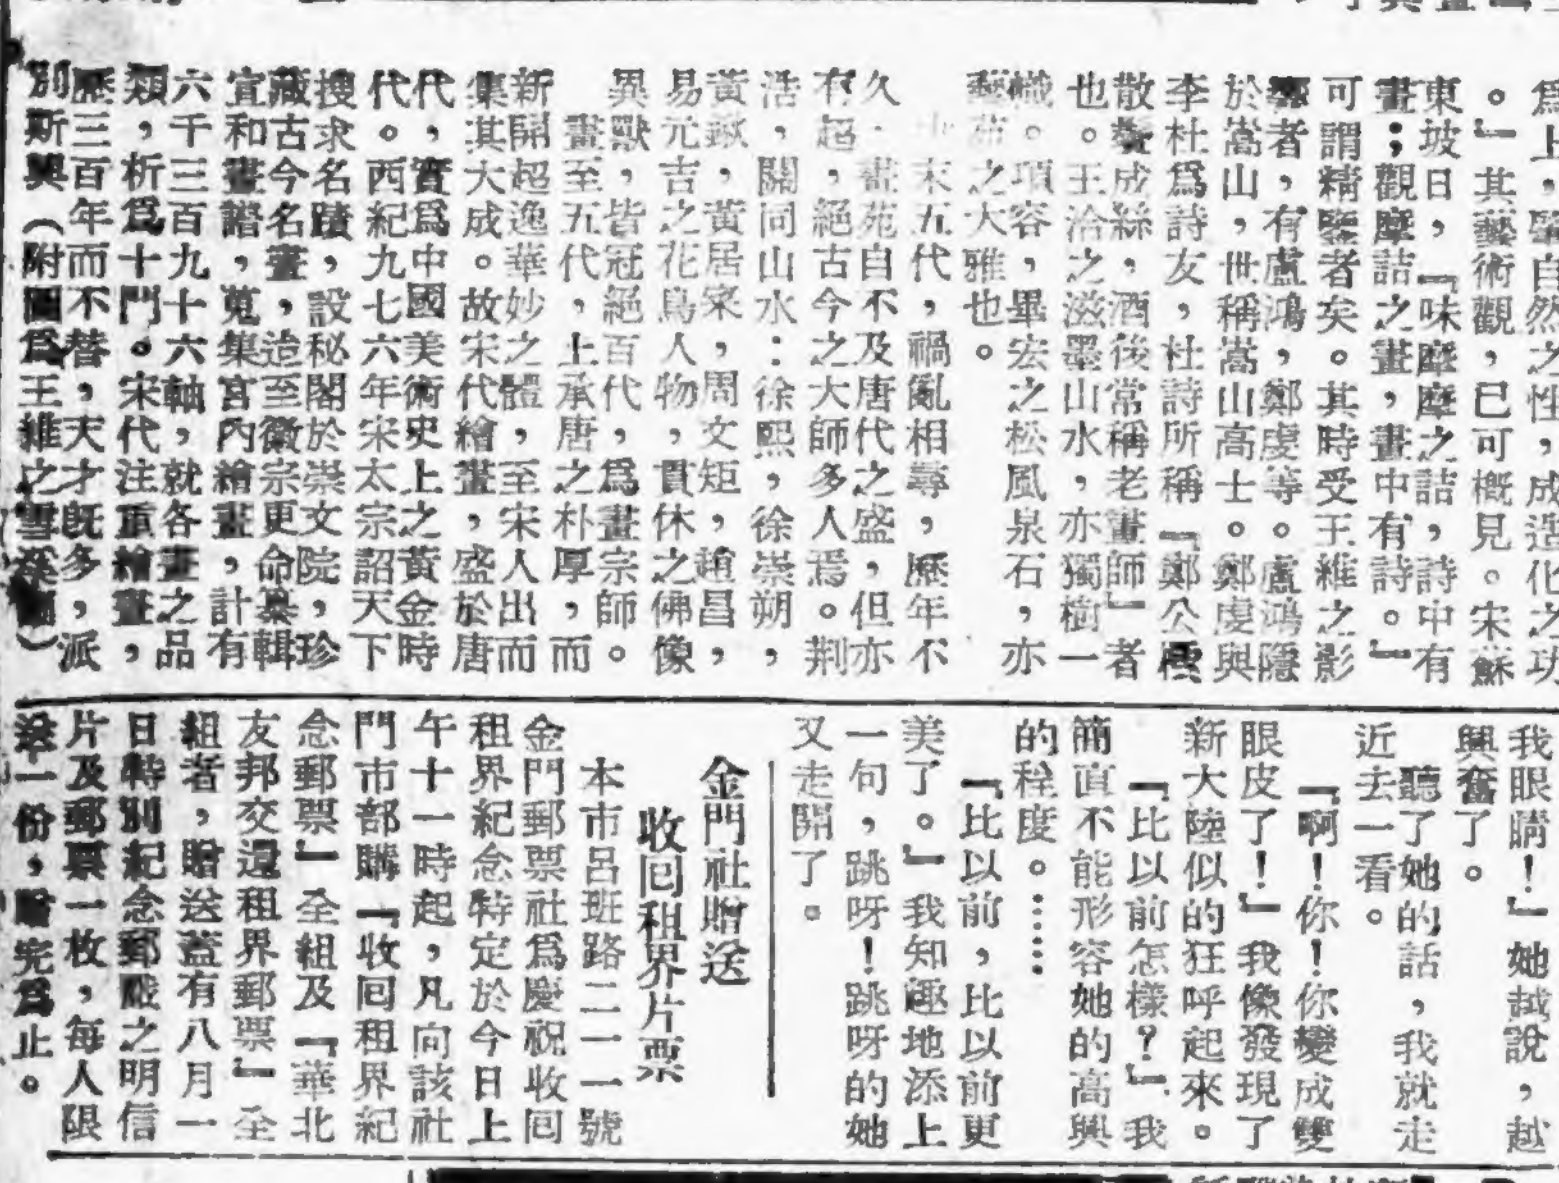 爲上，鑒自然之性，成造化之功
。』其藝術觀，已可概見。宋蘇
東坡曰，『味摩摩之詰，詩中有
畫；觀摩詰之畫，畫中有詩。』
可謂精鑒者矣。其時受王維之影
響者，有盧鴻，鄭虔等。盧鴻隱
於嵩山，世稱嵩山高士。鄭虔與
李杜爲詩友，杜詩所稱『鄭公樗
散鬢成絲，酒後常稱老畫師』者
也。王洽之滋墨山水，亦獨樹一
幟。項容，畢宏之松風泉石，亦
藝苑之大雅也。
末五代，禍亂相尋，歷年不
久，畫苑自不及唐代之盛，但亦
有超，絕古今之大師多人焉。荆
浩，關同山水：徐熙，徐崇朔，
黃鍬，黃居寀，周文矩，趙昌，
易元吉之花鳥人物，貫休之佛像
異獸，皆冠絕百代，爲畫宗師。
畫至五代，上承唐之朴厚，而
新開超逸華妙之體，至宋人出而
集其大成。故宋代繪畫，盛於唐
代，實爲中國美術史上之黃金時
代。西紀九七六年宋太宗詔天下
搜求名蹟，設秘閣於崇文院，珍
藏古今名畫，迨至徽宗更命纂輯
宣和畫譜，蒐集宮內繪畫，計有
六千三百九十六軸，就各畫之品
類，析爲十門。宋代注重繪畫，
歷三百年而不替，天才旣多，派
別斯興（附圖爲王維之雪溪圖）
我眼睛！』她越說，越
興奮了。
聽了她的話，我就走
近去一看。
『啊！你！你變成雙
眼皮了！』我像發現了
新大陸似的狂呼起來。
『比以前怎樣？』我
簡直不能形容她的高興
的程度。……
『比以前，比以前更
美了。』我知趣地添上
一句，跳呀！跳呀的她
又走開了。
金門社贈送
收囘租界片票
本市呂班路二一一號
金門郵票社爲慶祝收囘
租界紀念特定於今日上
午十一時起，凡向該社
門市部購『收囘租界紀
念郵票』全組及『華北
友邦交還租界郵票』全
組者，贈送蓋有八月一
日特別紀念郵戳之明信
片及郵票一枚，每人限
送一份，贈完爲止。